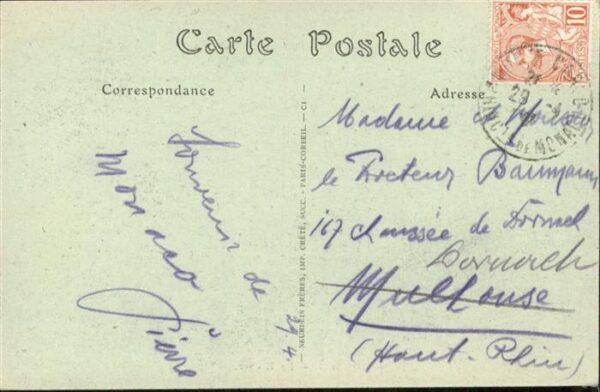 Carte Postale
Correspondance
Adresse
10
29
DE MONACO
Souvenir de
Monaco
Pierre
29.4.
NEURDEIN FRÈRES, IMP. CRÉTÉ, SUCC. - PARIS-CORBEIL. - CI
Madame et Monsieur
le Docteur Baumann
167 chaussée de Dornach
Dornach
Mulhouse
(Haut-Rhin)